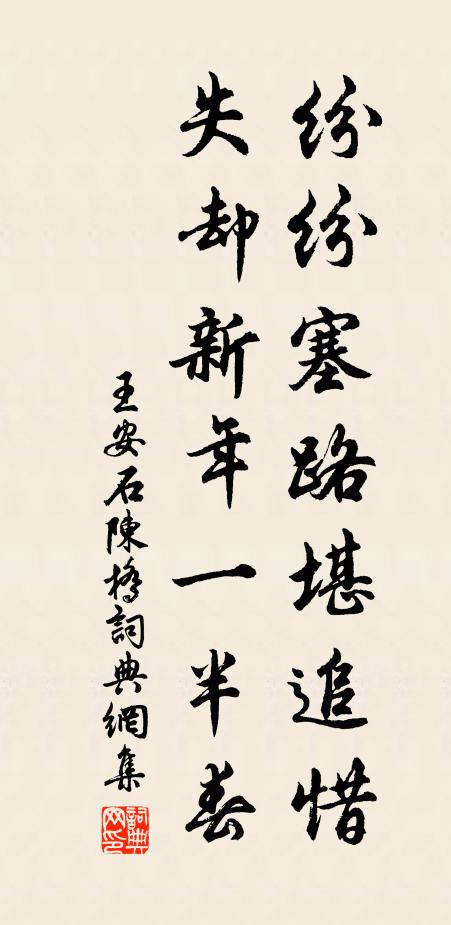 纷纷塞路堪追惜
失却新年一半春
王安石陳橋詞典網集
詞典網印